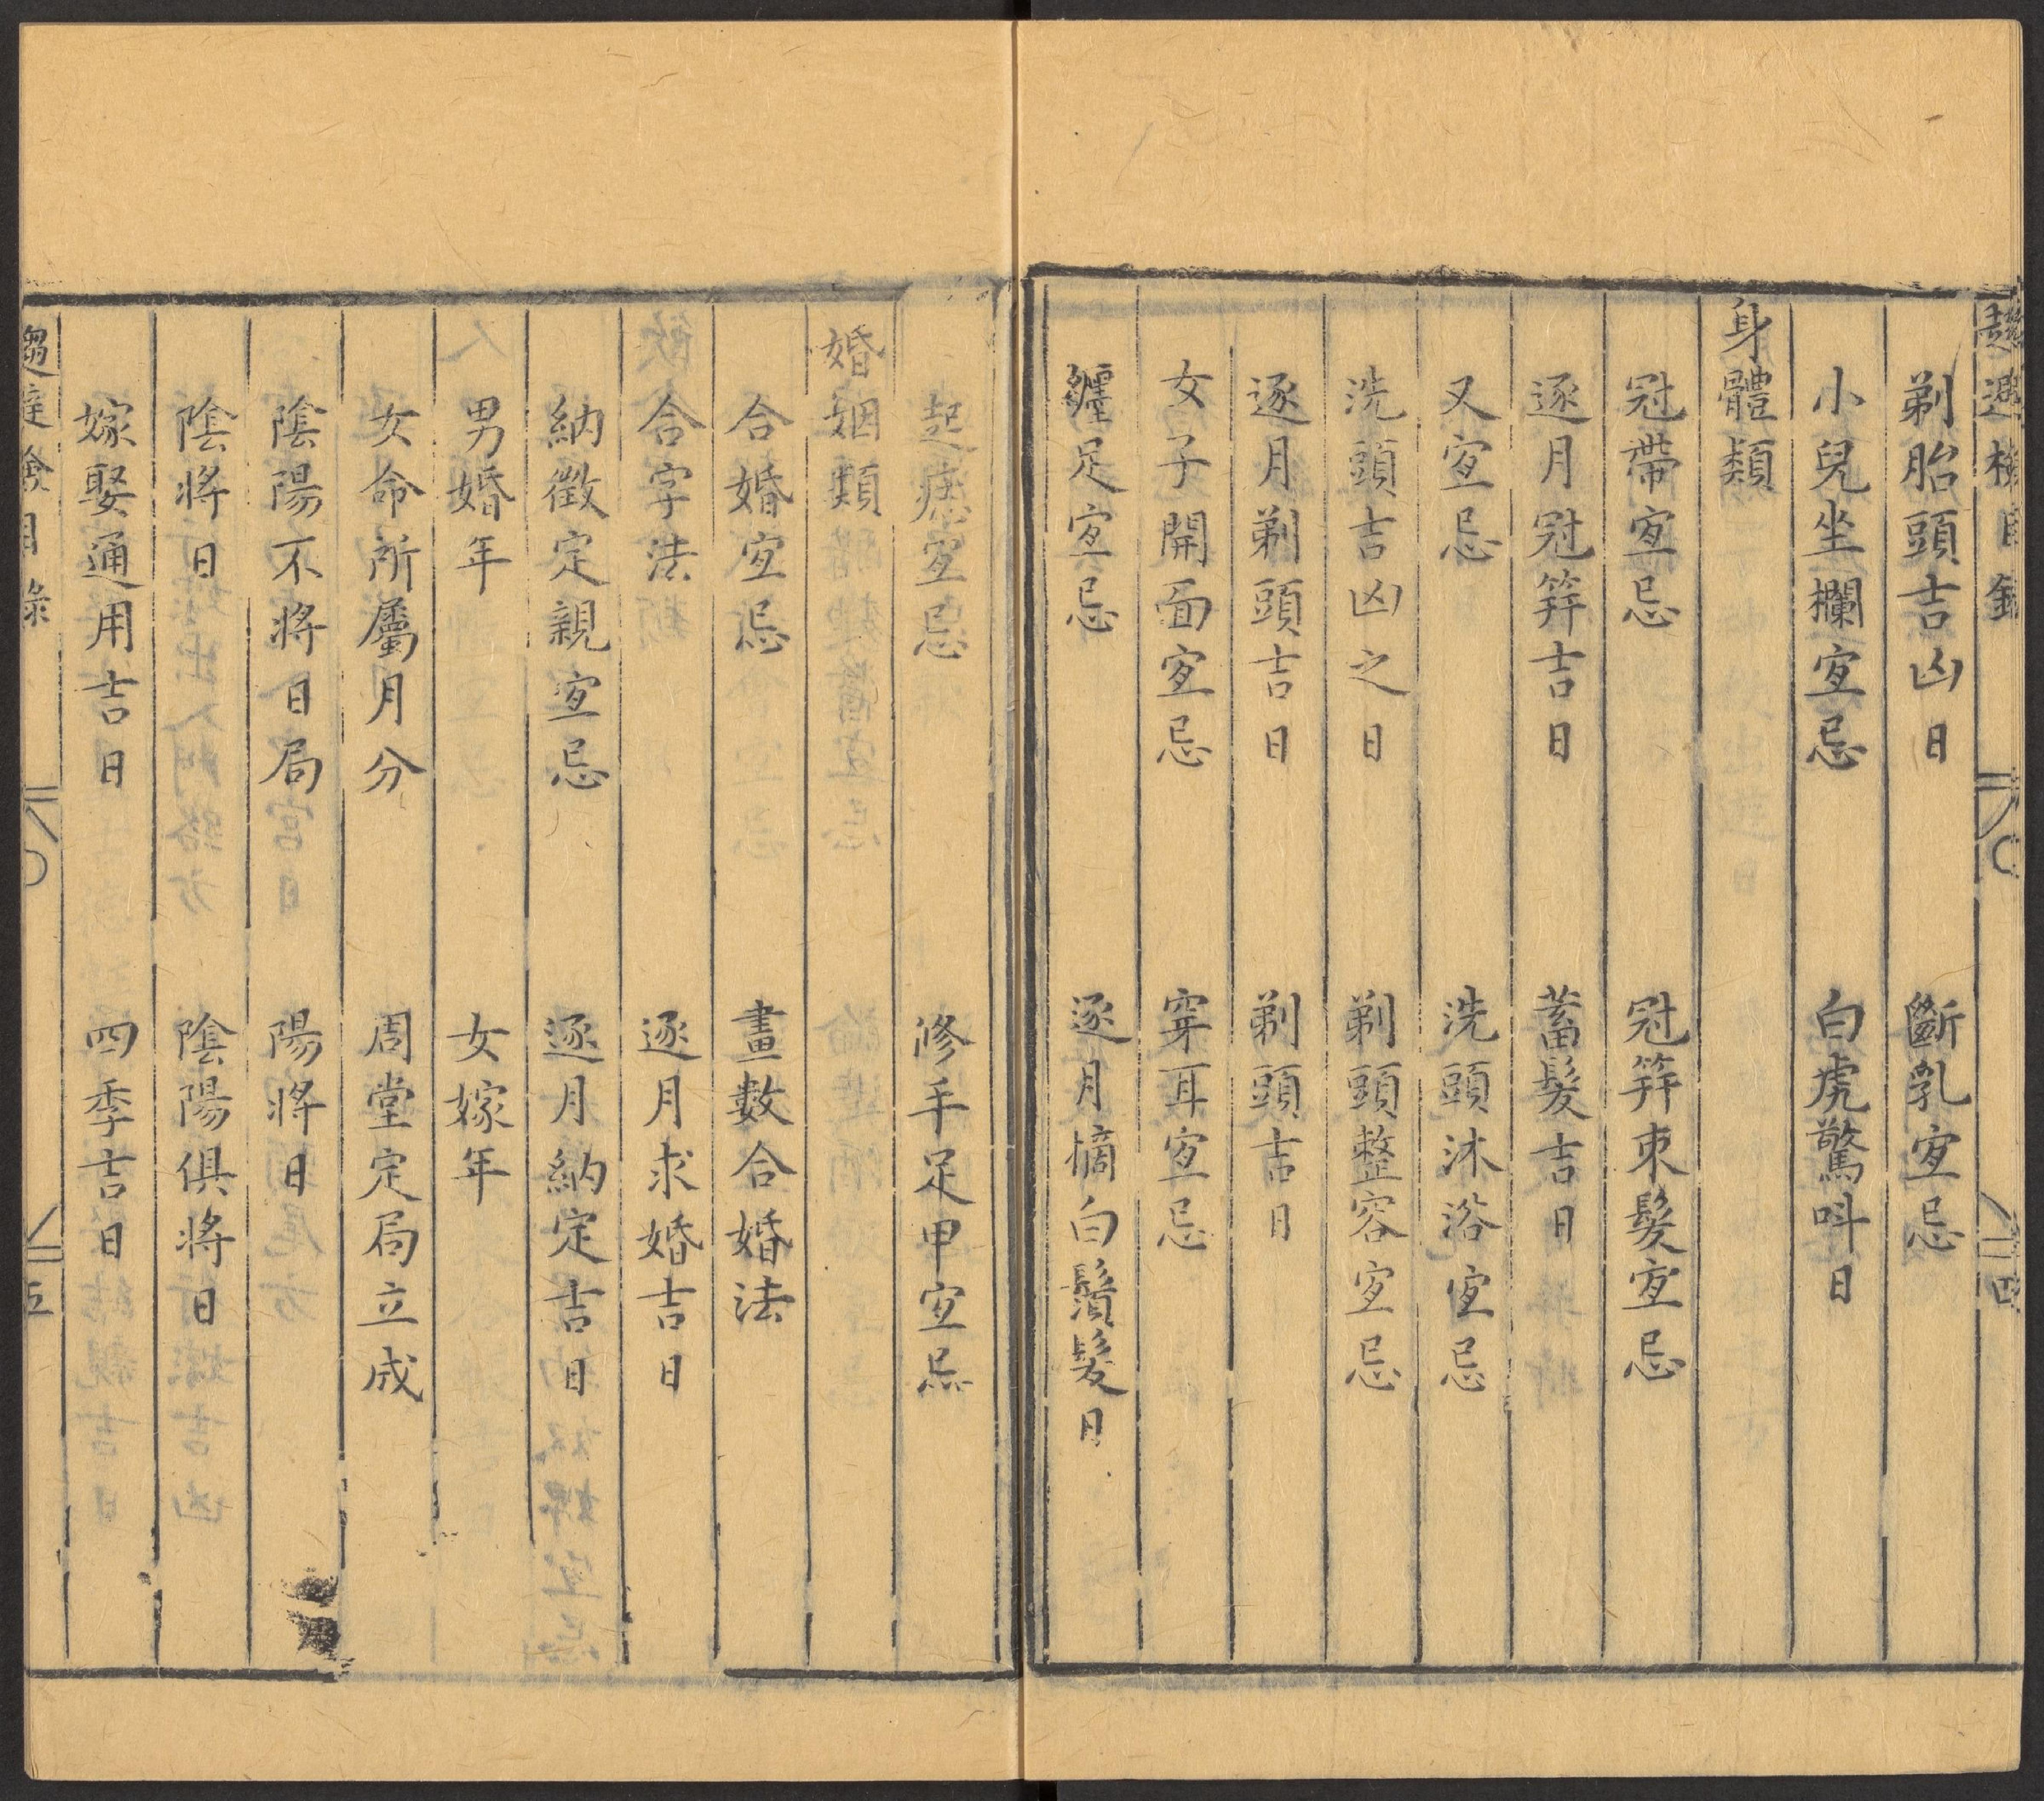 趨避檢目錄 四
剃胎頭吉凶日 斷乳宜忌
小兒坐欄宜忌 白虎驚呌日
身體類
冠帶宜忌 冠筓束髮宜忌
逐月冠筓吉日 蓄髮吉日
又宜忌 洗頭沐浴宜忌
洗頭吉凶之日 剃頭整容宜忌
逐月剃頭吉日 剃頭吉日
女子開面宜忌 穿耳宜忌
纏足宜忌 逐月摘白鬚髮日
起痣宜忌 修手足甲宜忌
婚姻類
合婚宜忌 畫數合婚法
合字法 逐月求婚吉日
納徵定親宜忌 逐月納定吉日
男婚年 女嫁年
女命所屬月分 周堂定局立成
陰陽不將日局 陽將日
陰將日 陰陽俱將日
嫁娶通用吉日 四季吉日
趨避檢目錄 五